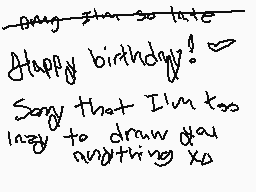 omg I'm so late
Happy birthday! ♡
Sorry that I'm too
lazy to draw you
anything XD